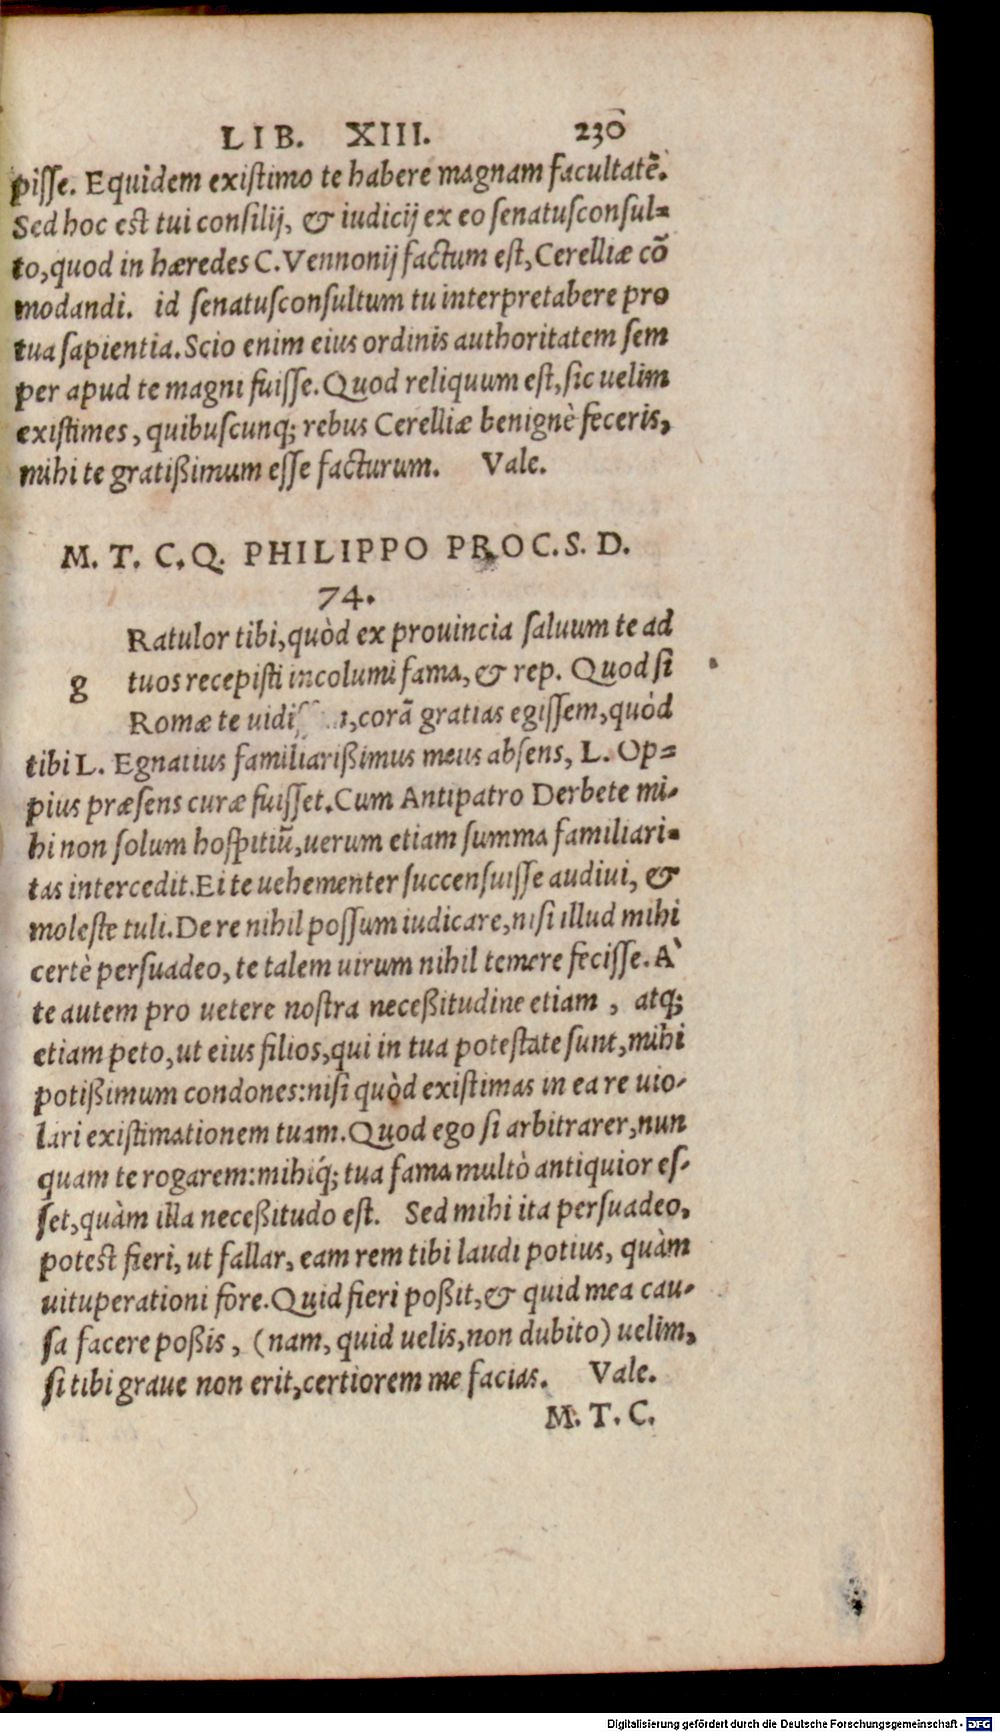 LIB. XIII. 230
pisse. Equidem existimo te habere magnam facultatẽ.
Sed hoc est tui consilij, & iudicij ex eo senatusconsul=
to, quod in hæredes C. Vennonij factum est, Cerelliæ cõ
modandi. id senatusconsultum tu interpretabere pro
tua sapientia. Scio enim eius ordinis authoritatem sem
per apud te magni fuisse. Quod reliquum est, sic uelim
existimes, quibuscunq; rebus Cerelliæ benignè feceris,
mihi te gratißimum esse facturum. Vale.
M. T. C. Q. PHILIPPO PROC. S. D.
74.
Ratulor tibi, quòd ex prouincia saluum te ad
g tuos recepisti incolumi fama, & rep. Quod si
Romæ te, corã gratias egissem, quòd
tibi L. Egnatius familiarißimus meus absens, L. Op=
pius præsens curæ fuisset. Cum Antipatro Derbete mi-
hi non solum hospitiũ, uerum etiam summa familiari=
tas intercedit. Ei te uehementer succensuisse audiui, &
moleste tuli. De re nihil possum iudicare, nisi illud mihi
certè persuadeo, te talem uirum nihil temere fecisse. À
te autem pro uetere nostra neceßitudine etiam, atq;
etiam peto, ut eius filios, qui in tua potestate sunt, mihi
potißimum condones: nisi quòd existimas in ea re uio-
lari existimationem tuam. Quod ego si arbitrarer, nun
quam te rogarem: mihiq́; tua fama multò antiquior es-
set, quàm illa neceßitudo est. Sed mihi ita persuadeo,
potest fieri, ut fallar, eam rem tibi laudi potius, quàm
uituperationi fore. Quid fieri poßit, & quid mea cau-
sa facere poßis, (nam, quid uelis, non dubito) uelim,
si tibi graue non erit, certiorem me facias. Vale.
M. T. C.
Digitalisierung gefördert durch die Deutsche Forschungsgemeinschaft - DFG